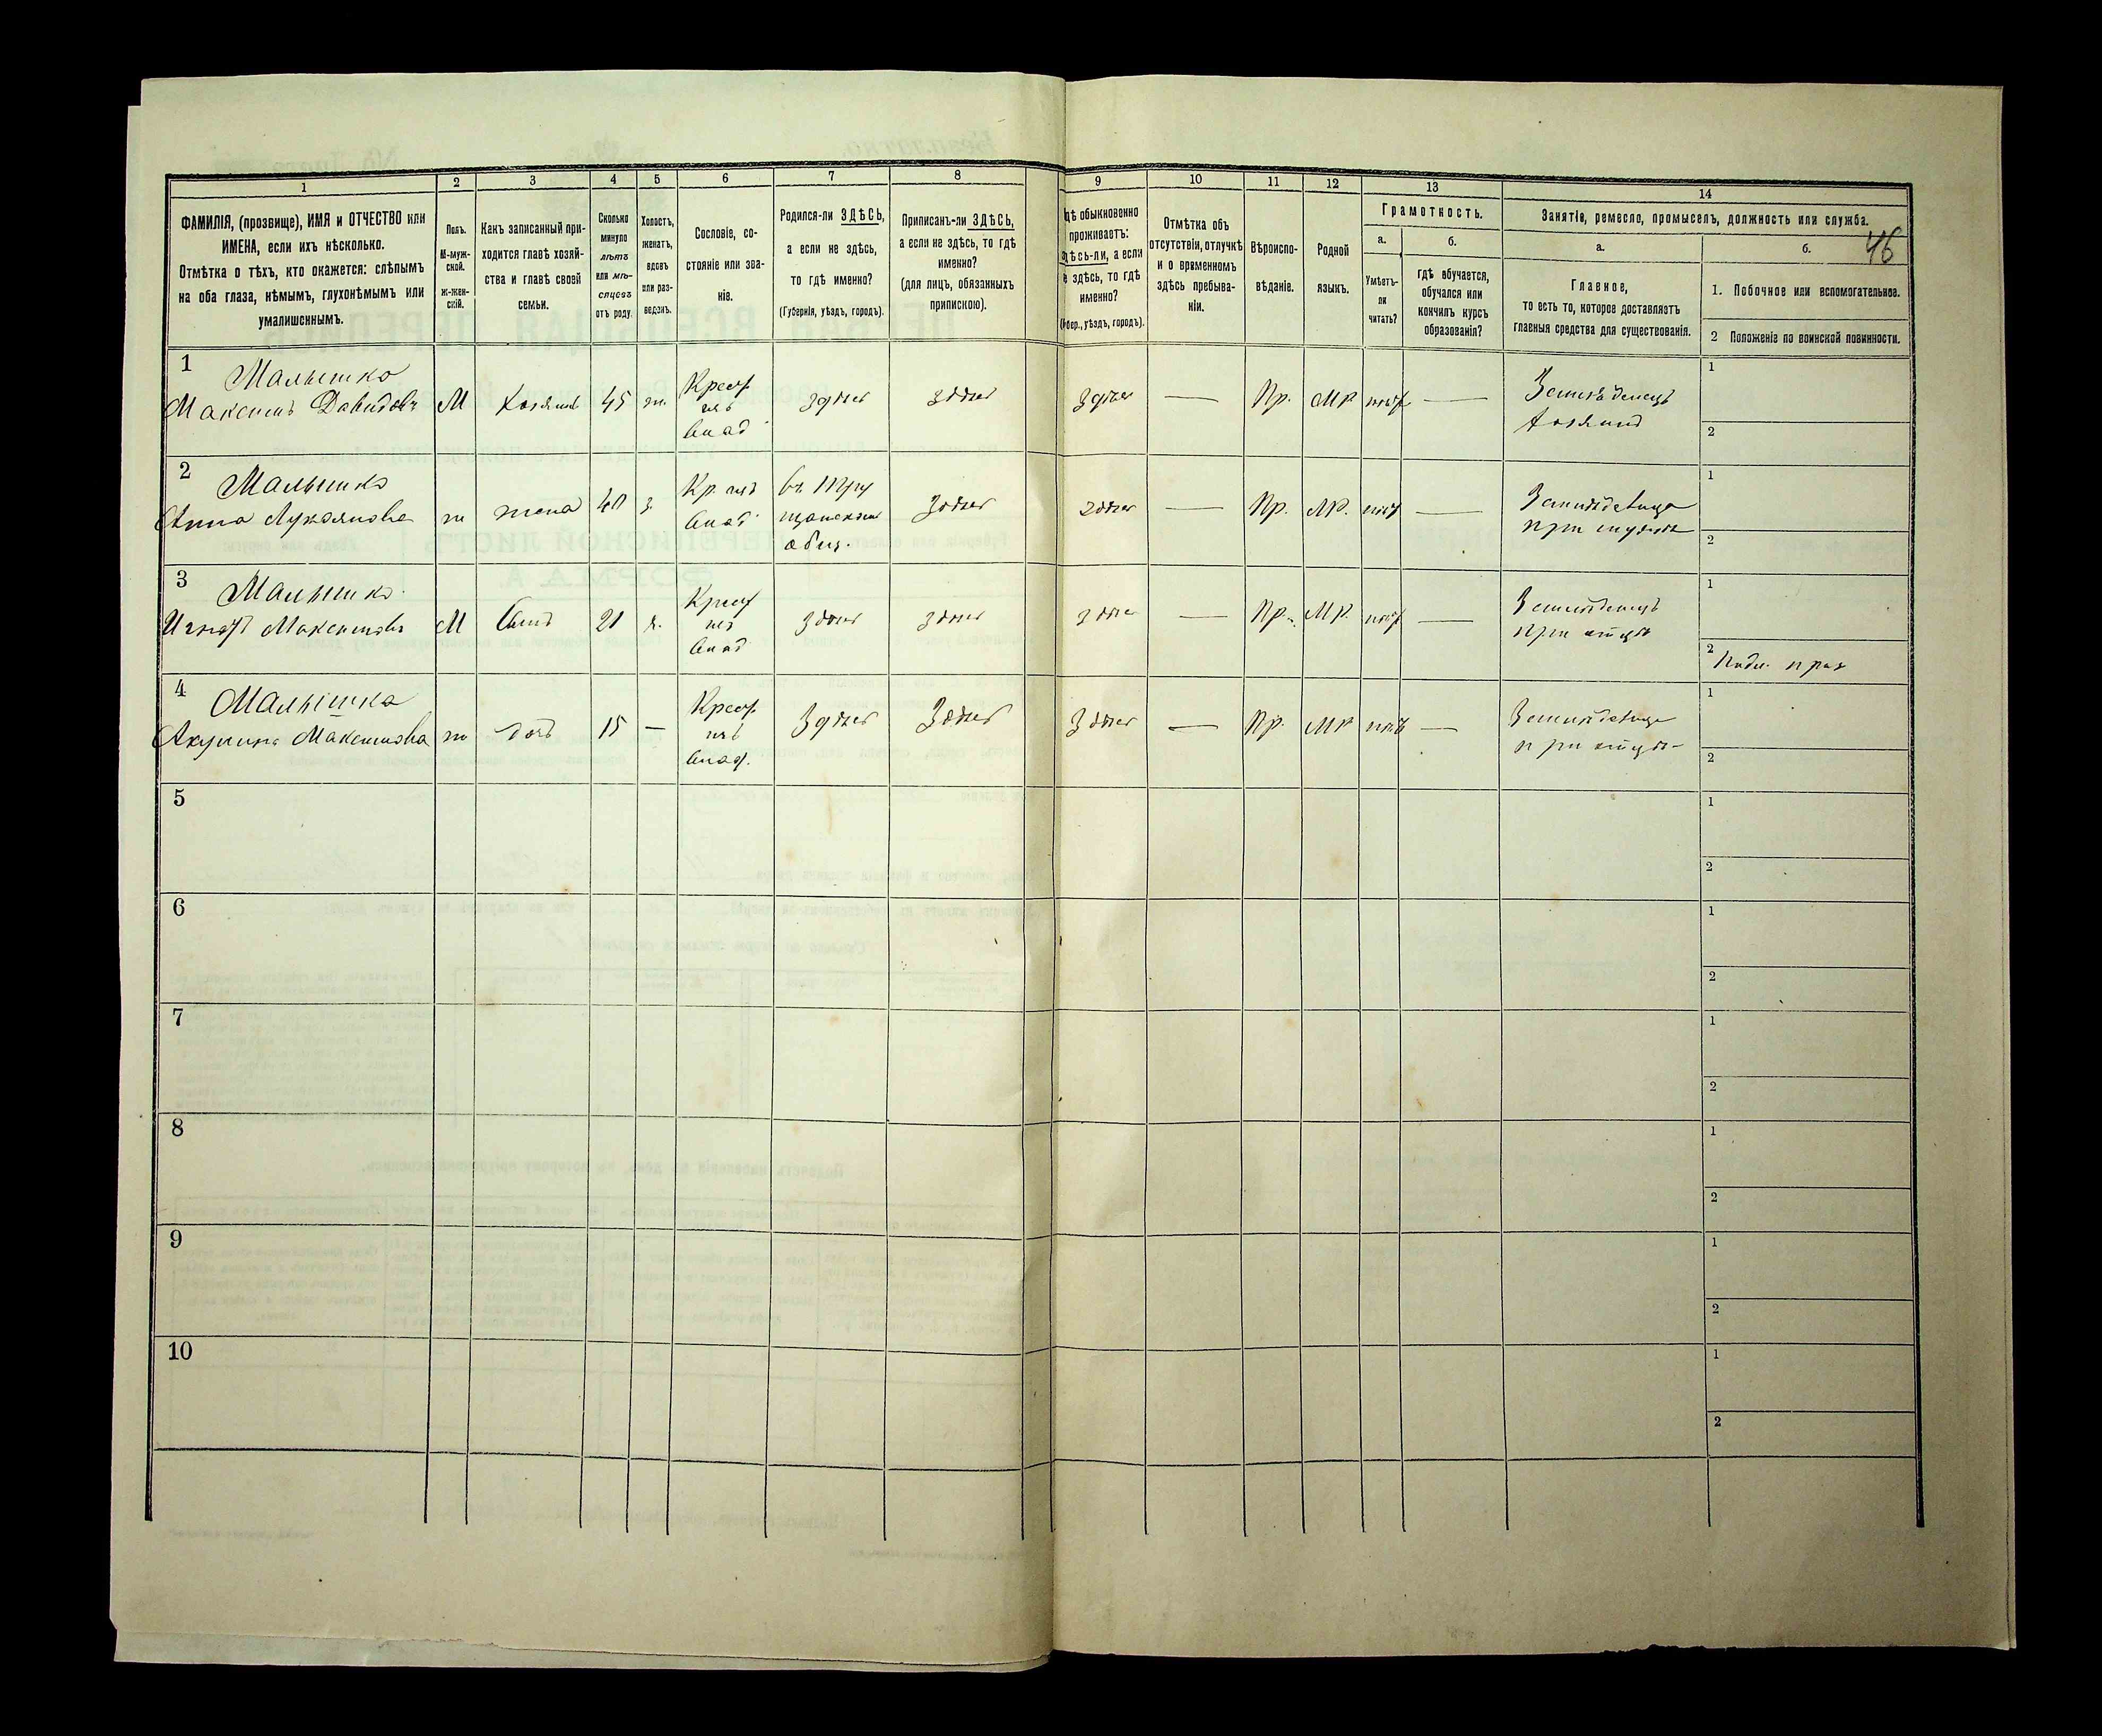 1 2 3 4 5 6 7 8 9 10 11 12 13 14
ФАМИЛІЯ, (прозвище), ИМЯ и ОТЧЕСТВО или
ИМЕНА, если ихъ нѣсколько.
Отмѣтка о тѣхъ, кто окажется: слѣпымъ
на оба глаза, нѣмымъ, глухонѣмымъ или
умалишеннымъ.
Полъ.
М-муж-
ской.
ж-жен-
скій.
Какъ записанный при-
ходится главѣ хозяй-
ства и главѣ своей
семьи.
Сколько
минуло
лѣтъ
или мѣ-
сяцевъ
отъ роду.
Холостъ,
женатъ,
вдовъ
или раз-
веденъ.
Сословіе, со-
стояніе или зва-
ніе.
Родился-ли ЗДѢСЬ,
а если не здѣсь,
то гдѣ именно?
(Губернія, уѣздъ, городъ).
Приписанъ-ли ЗДѢСЬ,
а если не здѣсь, то гдѣ
именно?
(для лицъ, обязанныхъ
припискою).
гдѣ обыкновенно
проживаетъ:
здѣсь-ли, а если
не здѣсь, то гдѣ
именно?
(Губер., уѣздъ, городъ).
Отмѣтка объ
отсутствіи, отлучкѣ
и о временномъ
здѣсь пребыва-
ніи.
Вѣроиспо-
вѣданіе.
Родной
языкъ.
Грамотность.
а. б.
Умѣетъ-
ли
читать?
гдѣ обучается,
обучался или
кончилъ курсъ
образованія?
Занятіе, ремесло, промыселъ, должность или служба.
46
а. б.
Главное,
то есть то, которое доставляетъ
главныя средства для существованія.
1. Побочное или вспомогательное.
2 Положеніе по воинской повинности.
1 Малышко
Максимъ Давидовъ
М Хозяинъ 45 ж.
Крест
изъ
влад
здѣсь здѣсь здѣсь — Пр. МР нѣт —
Земледѣлецъ
хозяинъ
1
2
2 Малышко
Анна Лукьянова
ж жена 40 з.
Кр. изъ
влад
общ.
здѣсь здѣсь — Пр. МР. нѣт —
Земледѣлица
при мужѣ
1
2
3 Малышко
Игнат Максимовъ
М Сынъ 21 х.
Крест
изъ
влад
здѣсь здѣсь здѣсь — Пр. МР. нѣт —
Земледѣлецъ
при отцѣ
1
2
4 Малышка
Акулина Максимова
ж дочь 15 —
Крест
изъ
влад.
Здѣсь Здѣсь Здѣсь — Пр. МР нѣтъ —
Земледѣлица
при отцѣ
1
2
5
1
2
6
1
2
7
1
2
8
1
2
9
1
2
10
1
2